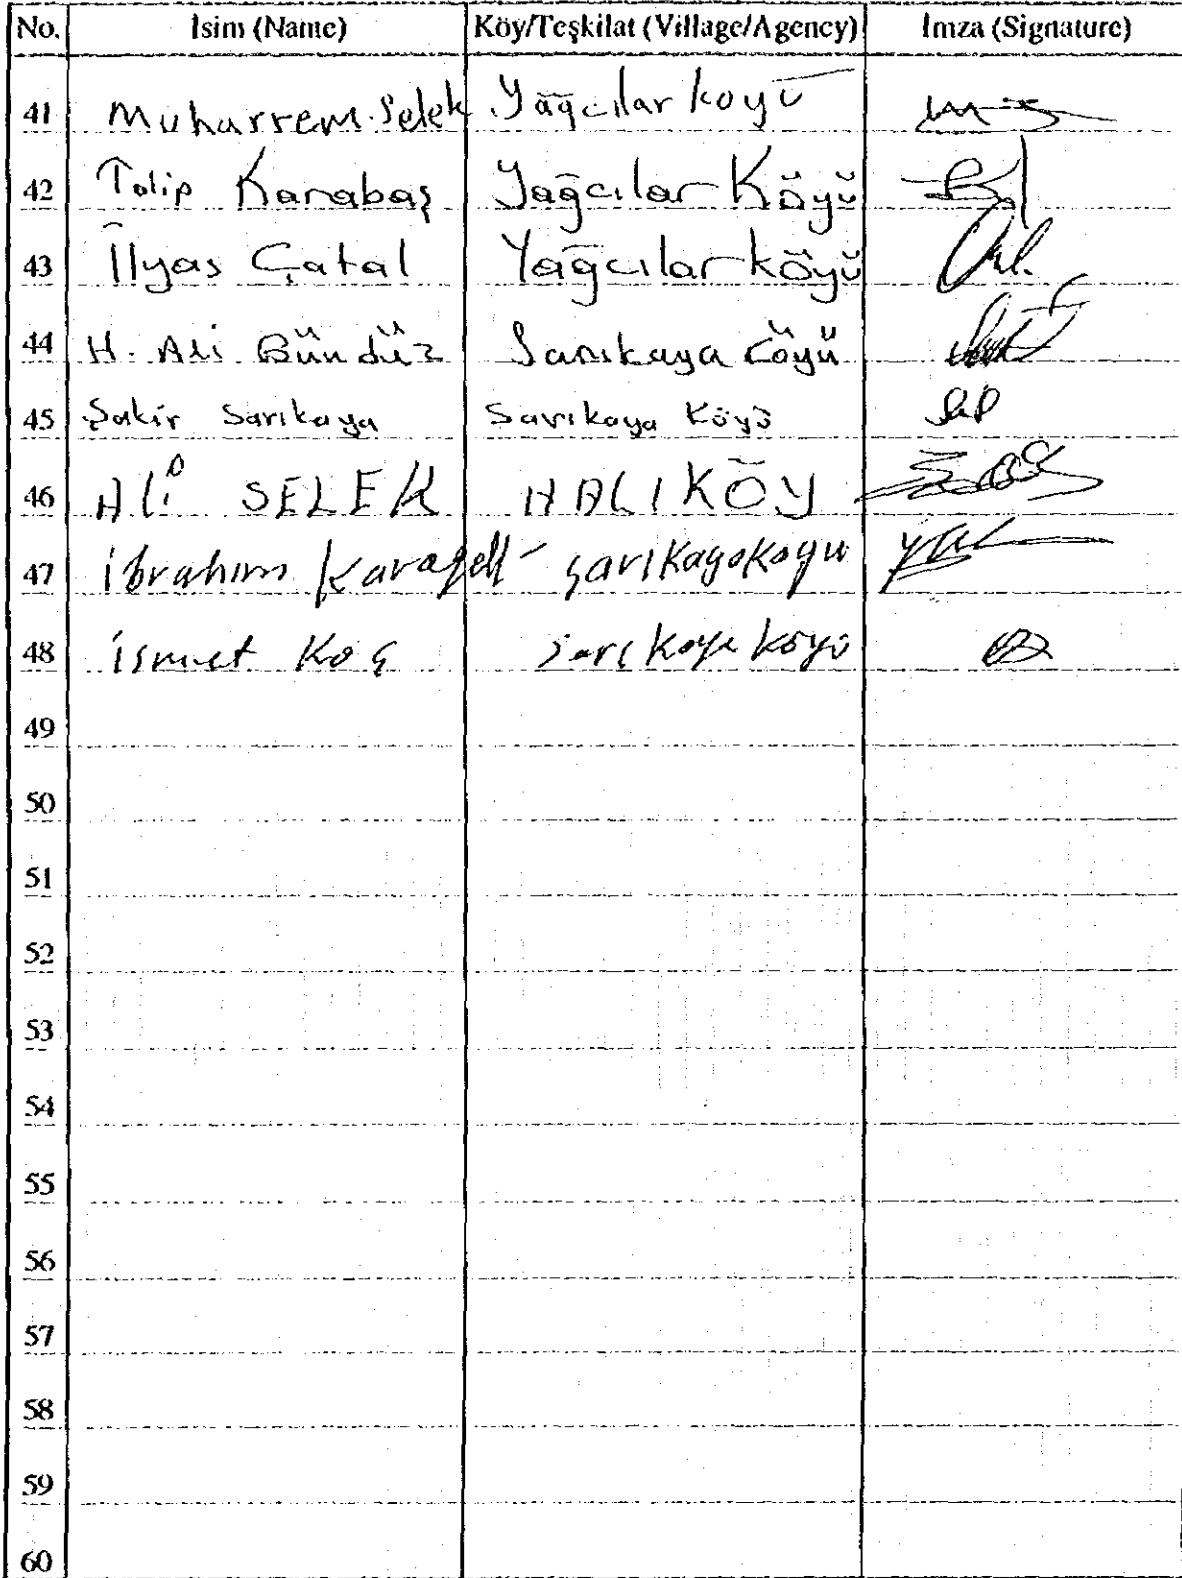 No. İsim (Name) Köy/Teşkilat (Village/Agency) İmza (Signature)
41 Muharrem Selek Yağcılar koyü
42 Talip Karabaş Yağcılar Köyü
43 İlyas Çatal Yağcılar köyü
44 H. Ali Gündüz Sarıkaya Köyü
45 Şakir Sarıkaya Sarıkaya Köyü
46 ALİ SELEK HALIKÖY
47 ibrahim sarıkayakoyu
48 ismet Koç Sarıkaya köyü
49
50
51
52
53
54
55
56
57
58
59
60